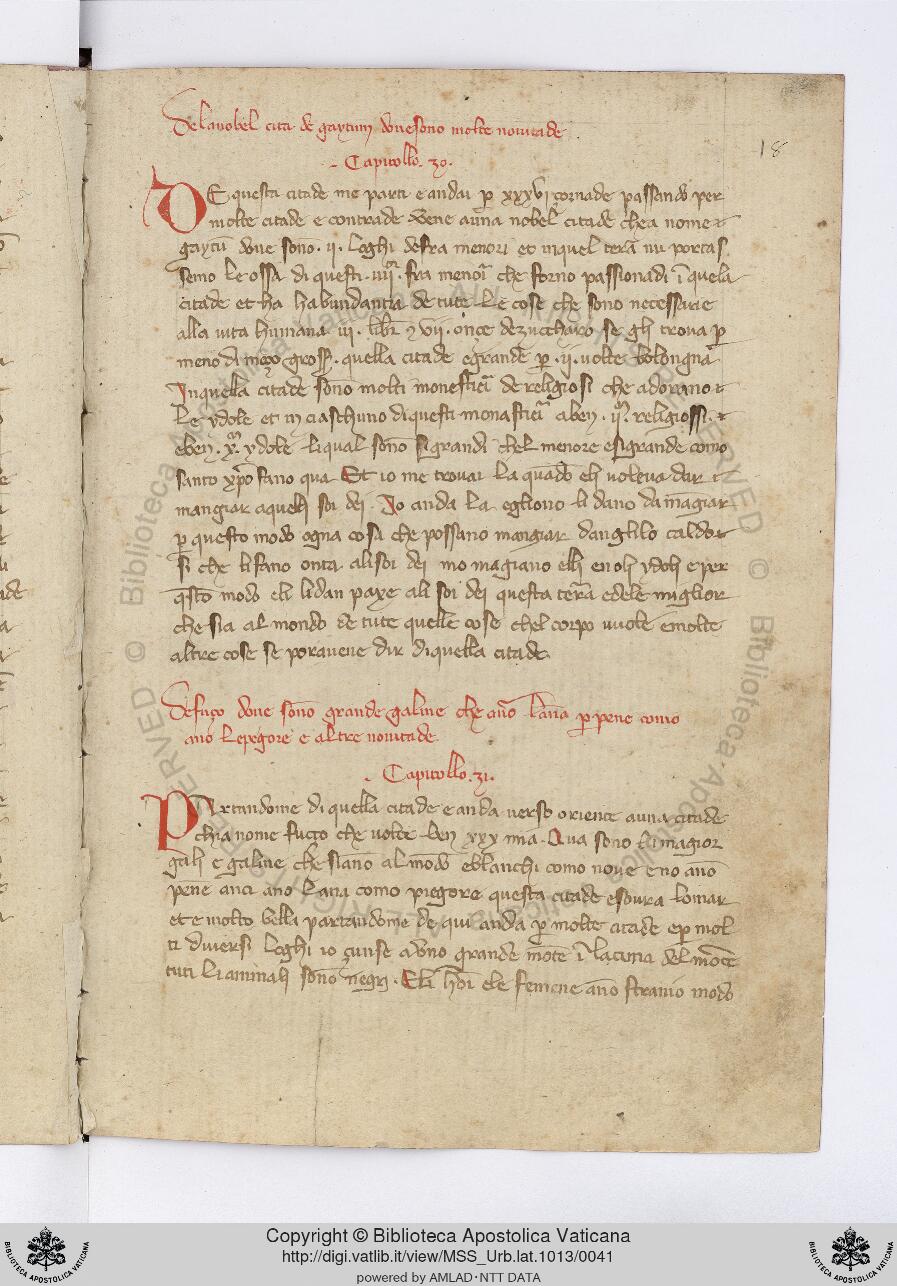 De la nobel cita de gaytum doue sono molte nouitade
Capitollo. 30.
18
DE questa citade me parti e andai p xxxvi zornade passando per
molte citade e contrade vene auna nobel citade che a nome
gaytu doue sono .ii. loghi de fra menori et in quel tera nui portas
semo le ossa di questi .iiii. fra menori che forno passionadi i quela
citade et ha habundantia de tute le cose che sono necessarie
alla uita humana iii. libr e vii. onçe de zuccharo se gli troua p
meno di mezo grosso. quella citade e grande p .ii. uolte bolongna
Inquella citade sono molti monestieri de religiosi che adorano
le ydole et in ciaschuno di questi monastieri a ben religiossi
e ben ydole li qual sono si grandi chel menore e si grande como
santo xpofano qua Et io me trouai la quado eli uoleua dar
mangiar aqueli soi dei. Io anda la egliono li dano da magiar
p questo modo ogna cosa che possano mangiar
si che li fano onta ali soi dei mo magiano elli e noli ydoli e per
qsto modo eli li dan paxe ali soi dei questa tera e dele miglior
che sia al mondo de tute quelle cose chel corpo uuole e molte
altre cose se poraue dir di quella citade.
De fuço doue sono grande galine che ano lana p pene como
ano le pegore e altre nouitade.
Capitollo. 31.
Partandome di quella citade e anda uerso oriente auna citade
chia nome fucço che uolte ben xxx mia. Qua sono li magior
gali e galine che siano al modo e blanchi como neue e no ano
pene anci ano lana como piegore questa citade e soura lo mar
et e molto bella partandome de qui anda p molte citade e p mol
ti diuersi loghi io çunse a uno grande mote i la cima del mote
tuti li animali sono negri. Eli homi e le femene ano stranio modo
Copyright © Biblioteca Apostolica Vaticana
http://digi.vatlib.it/view/MSS_Urb.lat.1013/0041
powered by AMLAD • NTT DATA